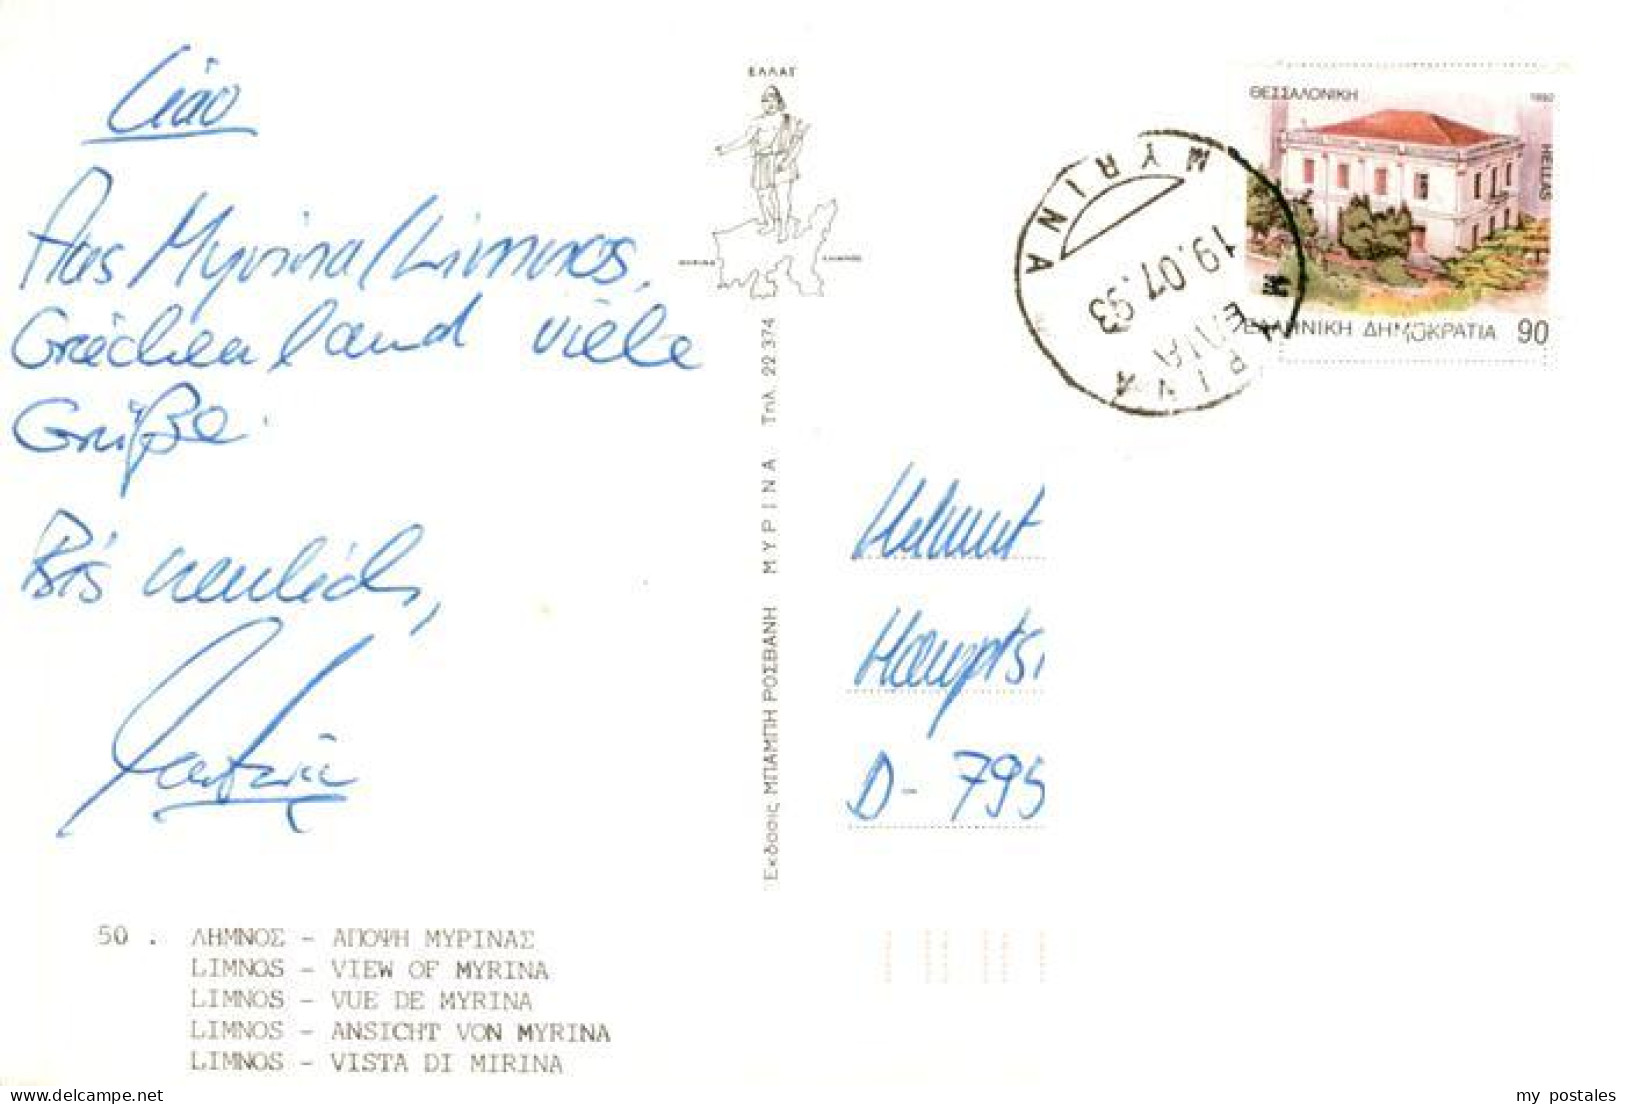 Ciao
Aus Myrina/Limnos,
Griechenland viele
Grüße.
Bis neulich,
50 . ΛΗΜΝΟΣ - ΑΠΟΨΗ ΜΥΡΙΝΑΣ
LIMNOS - VIEW OF MYRINA
LIMNOS - VUE DE MYRINA
LIMNOS - ANSICHT VON MYRINA
LIMNOS - VISTA DI MIRINA
ΕΛΛΑΣ
ΜΥΡΙΝΑ
ΛΗΜΝΟΣ
Ἐκδοσις ΜΠΑΜΠΗ ΡΟΣΒΑΝΗ ΜΥΡΙΝΑ Τηλ. 22 374
ΘΕΣΣΑΛΟΝΙΚΗ 1992
HELLAS
ΕΛΛΗΝΙΚΗ ΔΗΜΟΚΡΑΤΙΑ 90
MYRINA
19.07.93
Helmut
Haupts
D- 795
my postales
delcampe.net